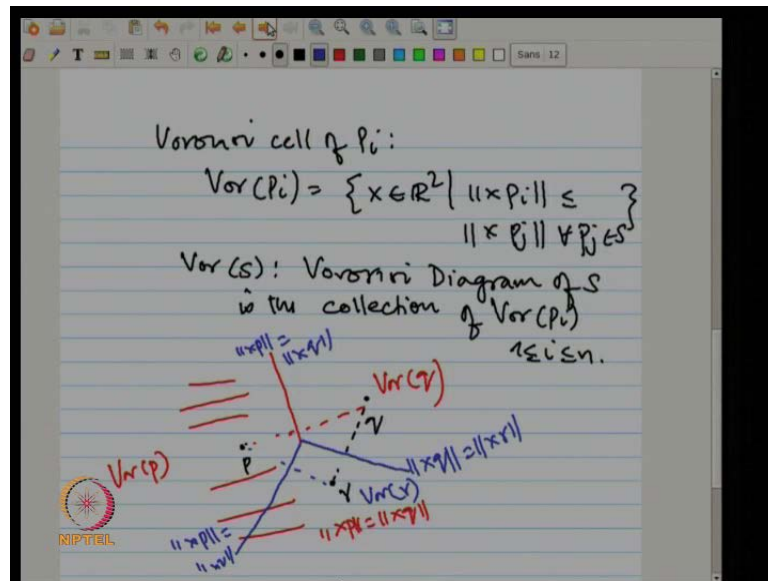 Sans 12
Voronoi cell of Pi:
Vor(Pi) = { x ∈ ℝ² | ||x Pi|| ≤
||x Pj|| ∀ Pj ∈ S }
Vor(S): Voronoi Diagram of S
is the collection of Vor(Pi)
1≤i≤n.
||xp|| =
||xq||
Vor(q)
q
p
Vor(p)
||xq|| = ||xr||
r
Vor(r)
||xp|| = ||xq||
||xp|| =
||xr||
NPTEL